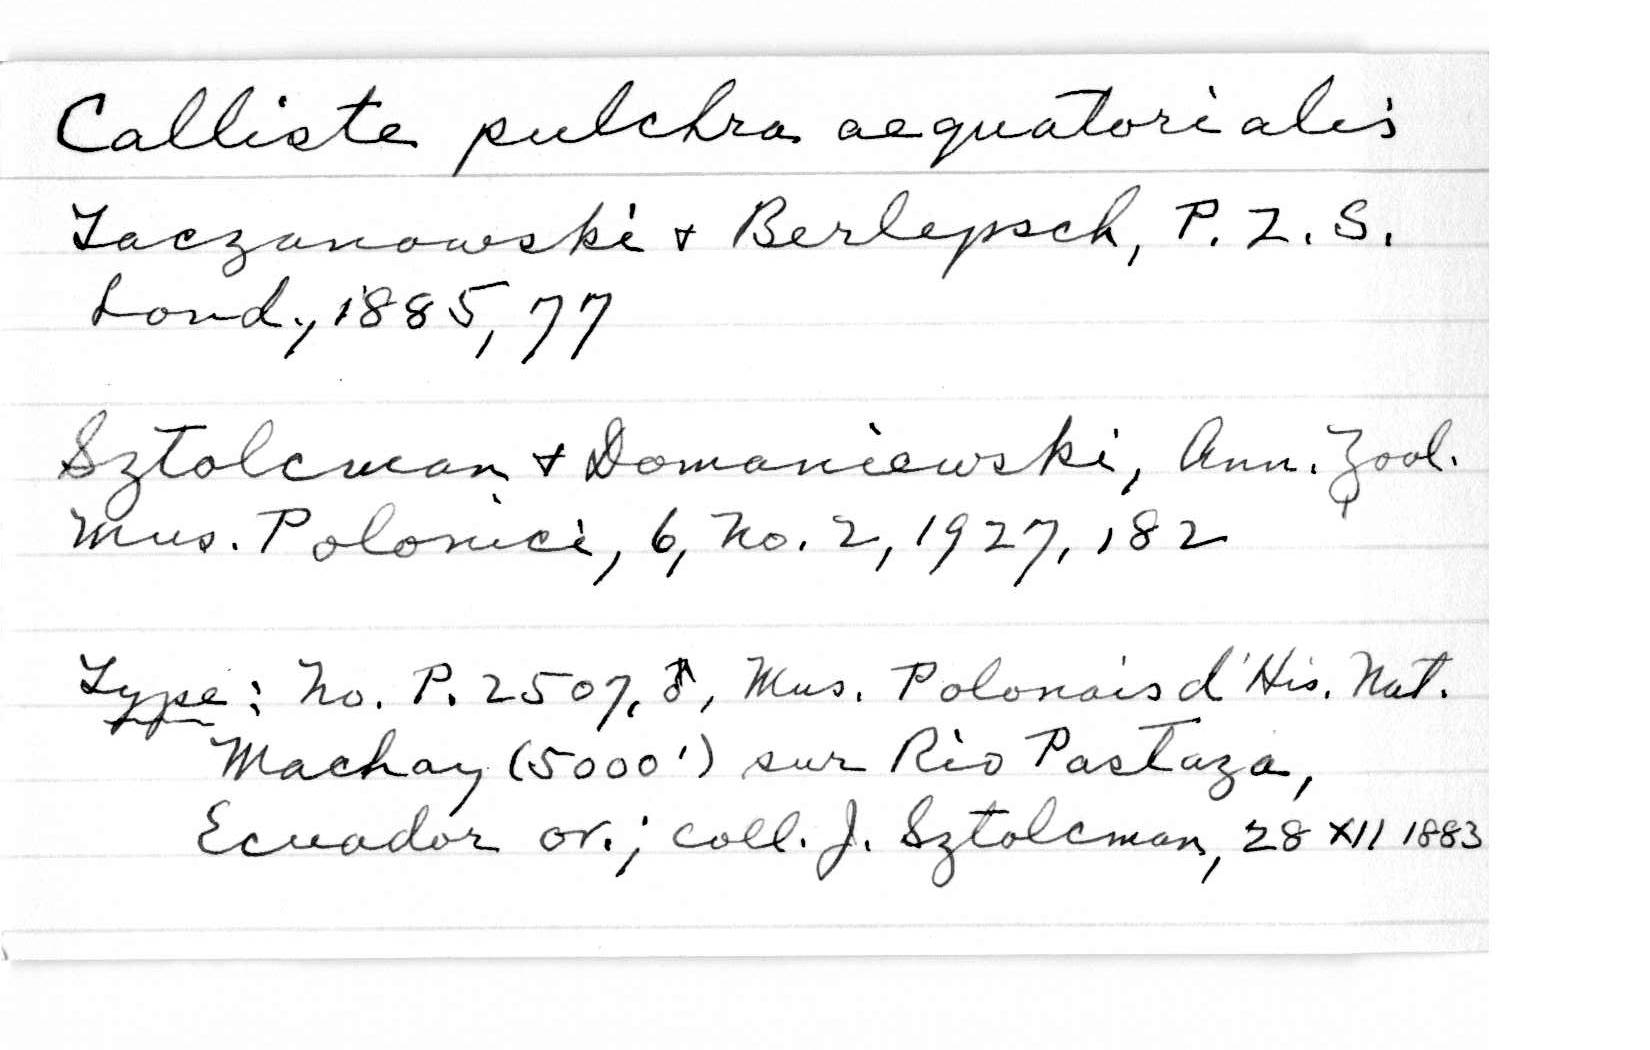 Calliste pulchra aequatorialis
Taczanowski + Berlepsch, P. Z. S.
Lond., 1885, 77
Sztolcman + Domaniewski, Ann. Zool.
Mus. Polonici, 6, No. 2, 1927, 182
Type: No. P. 2507, ♂, Mus. Polonais d'His. Nat.
Machay (5000') sur Rio Pastaza,
Ecuador or.; coll. J. Sztolcman, 28 XII 1883